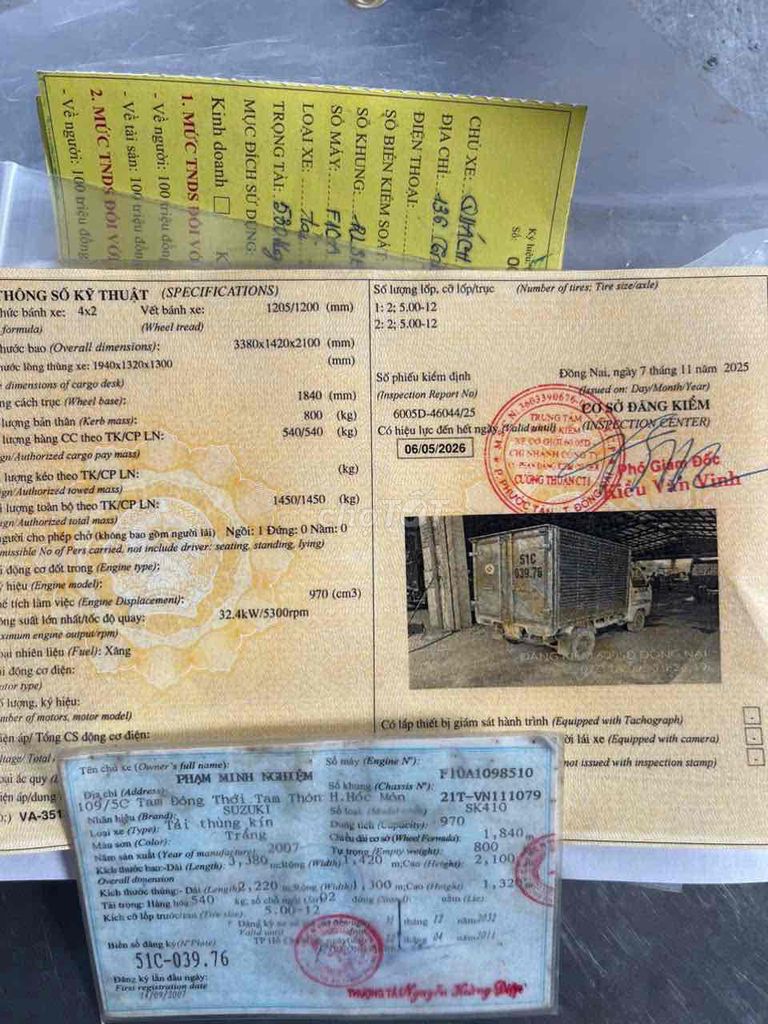 Ký hiệu
Số:
CHỦ XE: QUÁCH
ĐỊA CHỈ: 136
ĐIỆN THOẠI:
SỐ BIỂN KIỂM SOÁT
SỐ KHUNG: RLS
SỐ MÁY: F10A
LOẠI XE: Tải
TRỌNG TẢI: 530kg
MỤC ĐÍCH SỬ DỤNG:
Kinh doanh
1. MỨC TNDS ĐỐI VỚ
- Về người: 100 triệu đồng
- Về tài sản: 100 triệu đồn
2. MỨC TNDS ĐỐI VỚI
- Về người: 100 triệu đồng
THÔNG SỐ KỸ THUẬT (SPECIFICATIONS)
hức bánh xe: 4x2 Vết bánh xe: 1205/1200 (mm)
formula) (Wheel tread)
hước bao (Overall dimensions): 3380x1420x2100 (mm)
hước lòng thùng xe: 1940x1320x1300 (mm)
e dimensions of cargo desk)
ng cách trục (Wheel base): 1840 (mm)
lượng bản thân (Kerb mass): 800 (kg)
lượng hàng CC theo TK/CP LN: 540/540 (kg)
ign/Authorized cargo pay mass)
lượng kéo theo TK/CP LN: (kg)
ign/Authorized towed mass)
lượng toàn bộ theo TK/CP LN: 1450/1450 (kg)
ign/Authorized total mass)
người cho phép chở (không bao gồm người lái) Ngồi: 1 Đứng: 0 Nằm: 0
missible No of Pers carried, not include driver: seating, standing, lying)
i động cơ đốt trong (Engine type):
ý hiệu (Engine model):
hể tích làm việc (Engine Displacement): 970 (cm3)
ông suất lớn nhất/tốc độ quay: 32.4kW/5300rpm
ximum engine output/rpm)
oại nhiên liệu (Fuel): Xăng
ại động cơ điện:
otor type)
ố lượng, ký hiệu:
mber of motors, motor model)
iện áp/ Tổng CS động cơ điện:
ltage/ Total
oại ắc quy
iện áp/dung
VA-351
Số lượng lốp, cỡ lốp/trục (Number of tires; Tire size/axle)
1: 2; 5.00-12
2: 2; 5.00-12
Đồng Nai, ngày 7 tháng 11 năm 2025
(Issued on: Day/Month/Year)
Số phiếu kiểm định
(Inspection Report No)
6005D-46044/25
CƠ SỞ ĐĂNG KIỂM
(INSPECTION CENTER)
Có hiệu lực đến hết ngày (Valid until)
06/05/2026
TRUNG TÂM
CHI NHÁNH CÔNG TY
CƯỜNG THUẬN CTI
Phó Giám Đốc
Kiều Văn Vinh
51C
039.76
Có lắp thiết bị giám sát hành trình (Equipped with Tachograph)
ời lái xe (Equipped with camera)
not issued with inspection stamp)
Tên chủ xe (Owner's full name): Số máy (Engine N°):
PHẠM MINH NGHIỆM F10A1098510
Địa chỉ (Address): Số khung (Chassis N°):
109/5C Tam Đông Thới Tam Thôn H.Hóc Môn 21T-VN111079
Nhãn hiệu (Brand): SUZUKI Số loại SK410
Loại xe (Type): Tải thùng kín Dung tích (Capacity): 970
Màu sơn (Color): Trắng Chiều dài cơ sở (Wheel Formula): 1,840 m
Năm sản xuất (Year of manufacture): 2007 Tự trọng (Empty weight): 800
Kích thước bao: Dài (Length) 3,380 m; Rộng (Width) 1,420 m; Cao (Height): 2,100
Overall dimension
Kích thước thùng: Dài (Length) 2,220 m; Rộng (Width) 1,300 m; Cao (Height) 1,320
Tải trọng: Hàng hóa 540 kg; số chỗ ngồi 02 đứng nằm (Lie)
Kích cỡ lốp trước/sau (Tire size): 5.00-12
Valid until 31 tháng 12 năm 2032
Biển số đăng ký (N° Plate) tháng 04 năm 2011
51C-039.76
Đăng ký lần đầu ngày:
First registration date
14/09/2007
THƯỢNG TÁ Nguyễn Hoàng Điệp